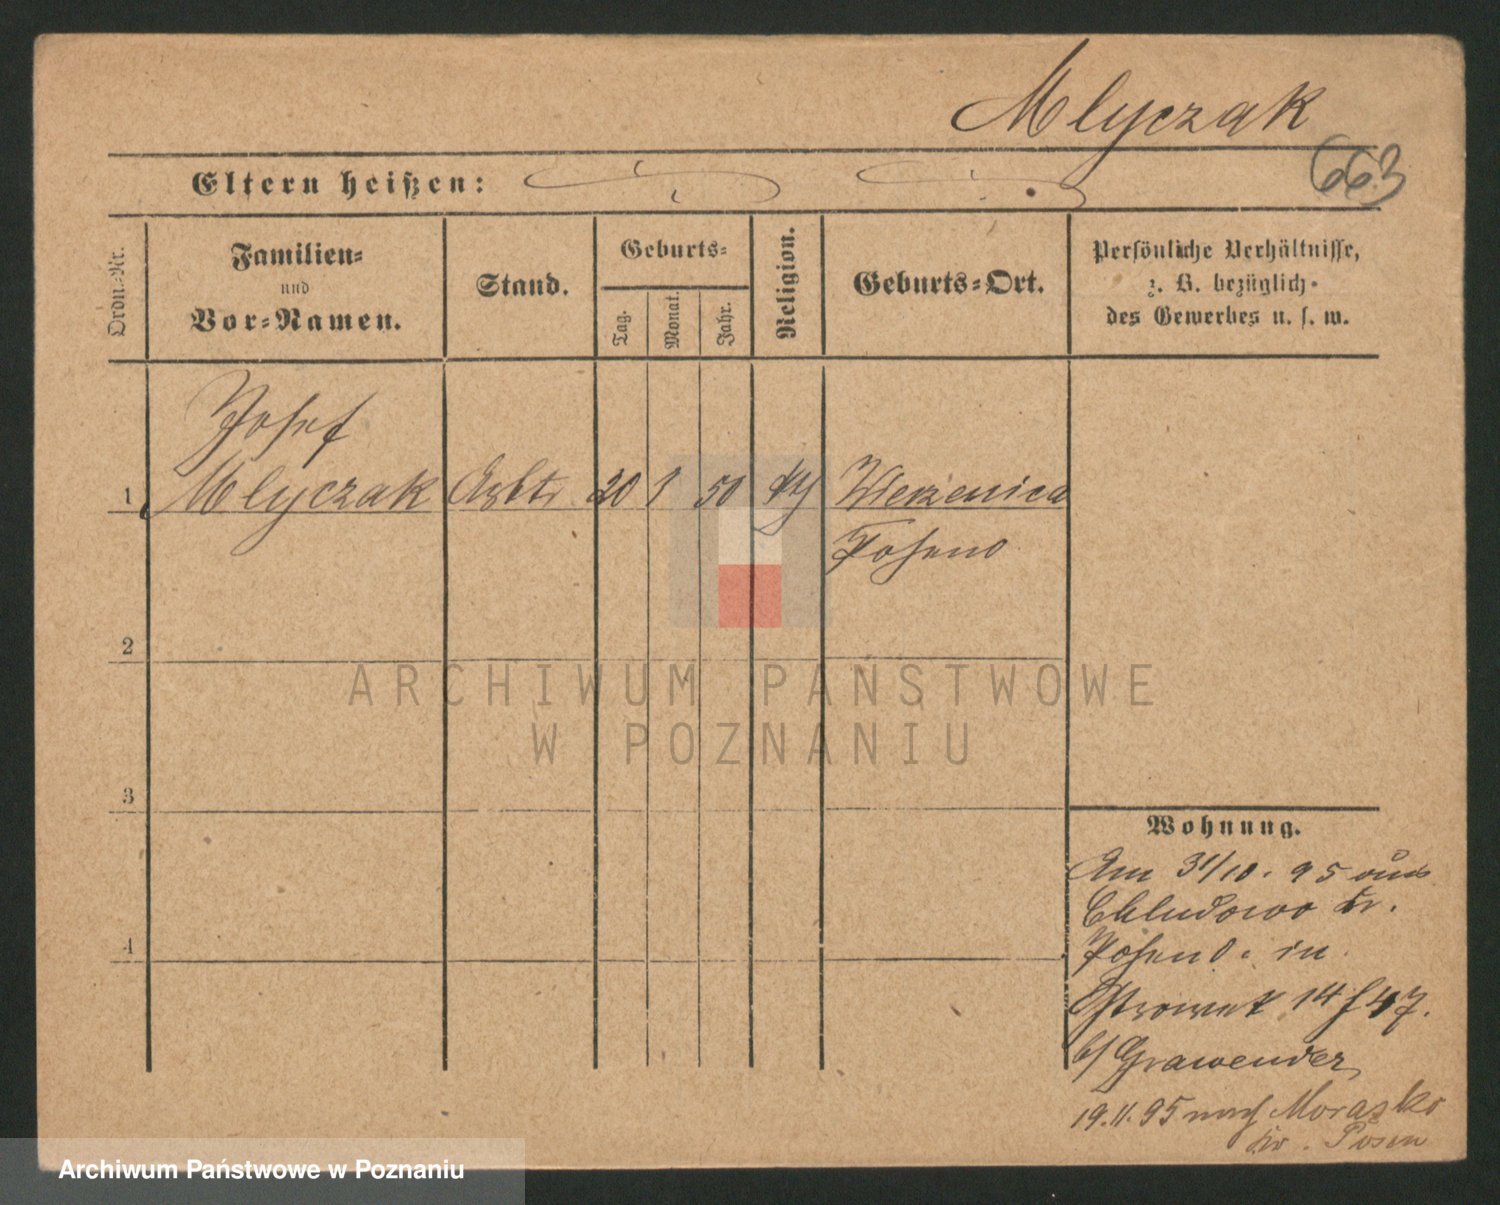 Mlyczak
663
Eltern heißen:
Ordn.-Nr.
Familien-
und
Vor-Namen.
Stand.
Geburts-
Tag.
Monat.
Jahr.
Religion.
Geburts-Ort.
Persönliche Verhältnisse,
z. B. bezüglich
des Gewerbes u. s. w.
Josef
1 Mlyczak Arbtr 20 1 50 Wierzenica
Posen O
2
3
4
ARCHIWUM PAŃSTWOWE
W POZNANIU
Wohnung.
Am 31/10. 95 aus
Chludowo Kr.
Posen O. in
Ostrowek 14
b/ Grawender
19.11.95 nach Morasko
Kr. Posen
Archiwum Państwowe w Poznaniu